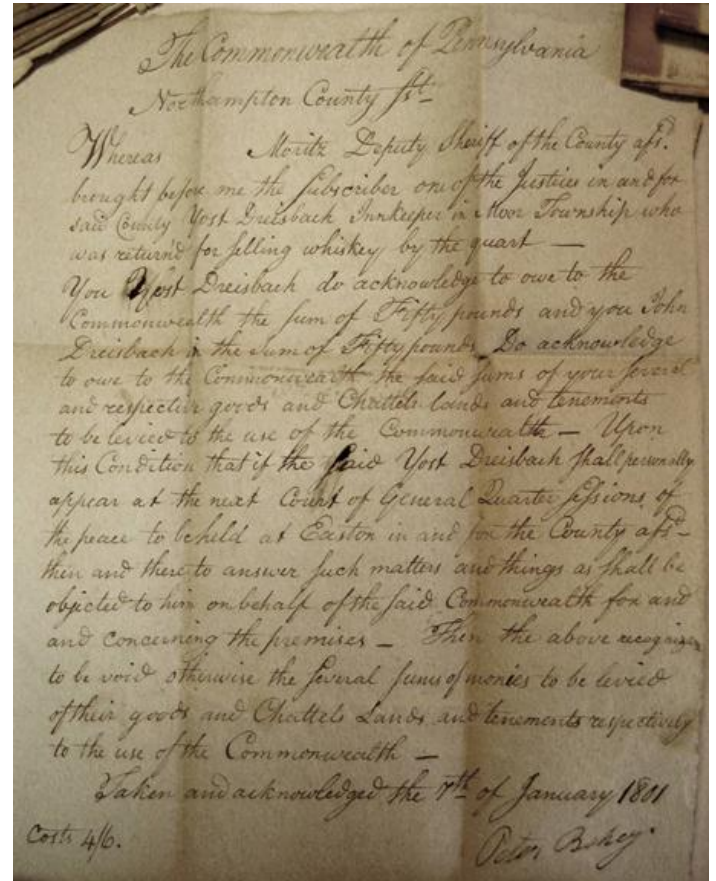 The Commonwealth of Pennsylvania
Northampton County Sst
Whereas Moritz Deputy Sheriff of the County afsd.
brought before me the subscriber one of the Justices in and for
said County Yost Dreisbach Innkeeper in Moor Township who
was return'd for selling whiskey by the quart —
You Yost Dreisbach do acknowledge to owe to the
Commonwealth the sum of Fifty pounds and you John
Dreisbach in the sum of Fifty pounds Do acknowledge
to owe to the Commonwealth the said sums of your several
and respective goods and Chattels lands and tenements
to be levied to the use of the Commonwealth — Upon
this Condition that if the said Yost Dreisbach shall personally
appear at the next Court of General Quarter Sessions of
the peace to be held at Easton in and for the County afsd —
then and there to answer such matters and things as shall be
objected to him on behalf of the said Commonwealth for and
and concerning the premises — Then the above
to be void otherwise the several sums of monies to be levied
of their goods and Chattels Lands and tenements respectively
to the use of the Commonwealth —
Taken and acknowledged the 7th of January 1801
Costs 4/6. Peter